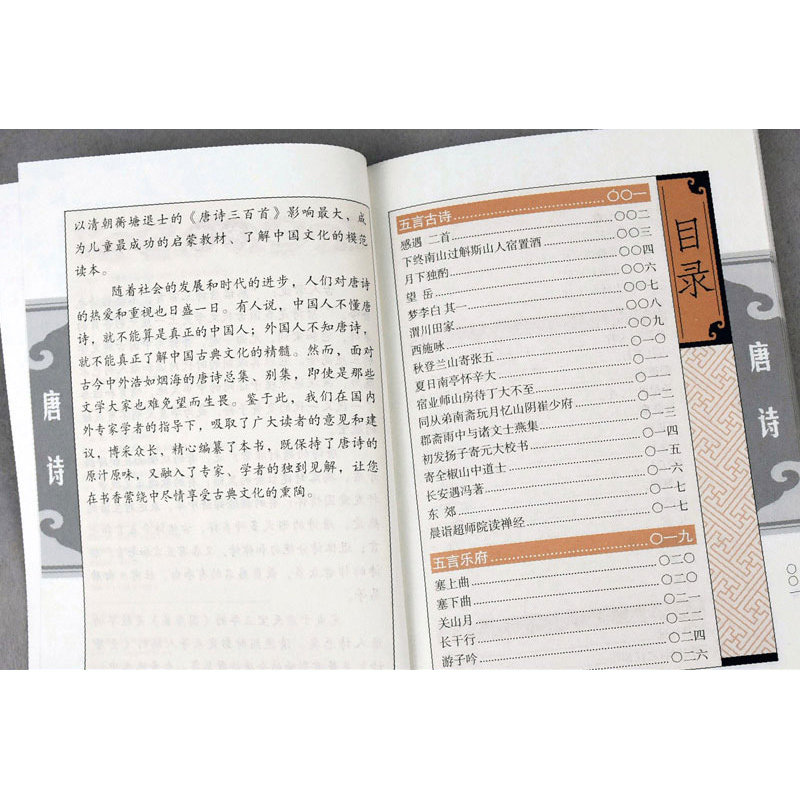 以清朝蘅塘退士的《唐诗三百首》影响最大，成
为儿童最成功的启蒙教材、了解中国文化的模范
读本。
随着社会的发展和时代的进步，人们对唐诗
的热爱和重视也日盛一日。有人说，中国人不懂唐
诗，就不能算是真正的中国人；外国人不知唐诗，
就不能真正了解中国古典文化的精髓。然而，面对
古今中外浩如烟海的唐诗总集、别集，即使是那些
文学大家也难免望而生畏。鉴于此，我们在国内
外专家学者的指导下，吸取了广大读者的意见和建
议，博采众长，精心编纂了本书，既保持了唐诗的
原汁原味，又融入了专家、学者的独到见解，让您
在书香萦绕中尽情享受古典文化的熏陶。
唐诗
目录
五言古诗 〇〇一
感遇 二首 〇〇二
下终南山过斛斯山人宿置酒 〇〇三
月下独酌 〇〇四
望 岳 〇〇六
梦李白 其一 〇〇七
渭川田家 〇〇八
西施咏 〇〇九
秋登兰山寄张五 〇一〇
夏日南亭怀辛大 〇一一
宿业师山房待丁大不至 〇一一
同从弟南斋玩月忆山阴崔少府 〇一二
郡斋雨中与诸文士燕集 〇一三
初发扬子寄元大校书 〇一四
寄全椒山中道士 〇一五
长安遇冯著 〇一六
东 郊 〇一七
晨诣超师院读禅经 〇一七
五言乐府 〇一九
塞上曲 〇二〇
塞下曲 〇二〇
关山月 〇二一
长干行 〇二四
游子吟 〇二六
唐诗
〇〇一